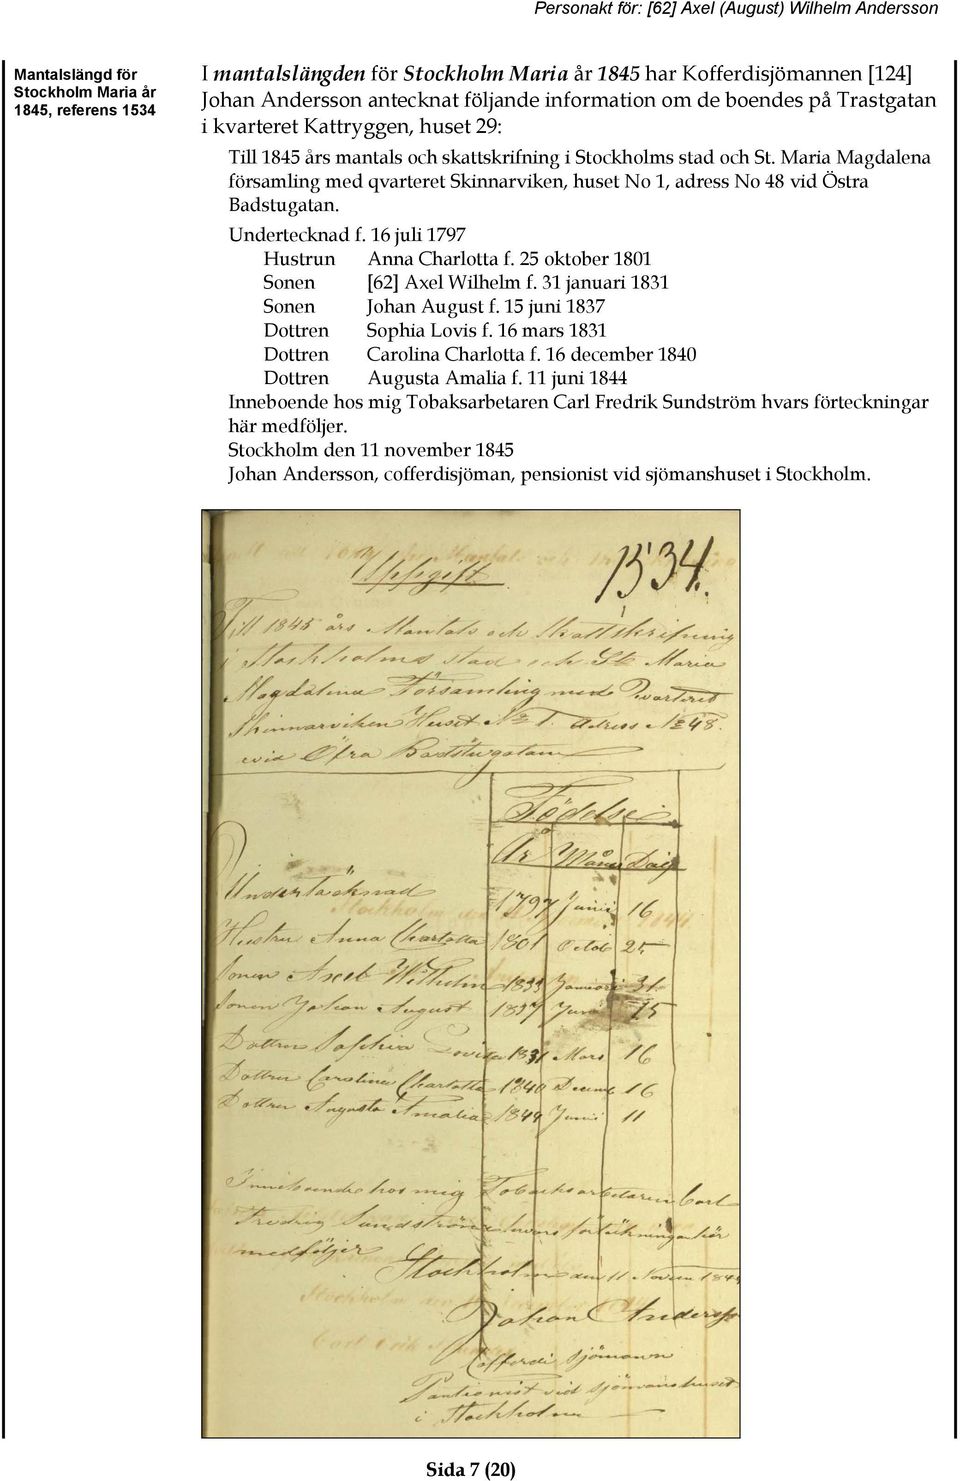 Personakt för: [62] Axel (August) Wilhelm Andersson
Mantalslängd för
Stockholm Maria år
1845, referens 1534
I mantalslängden för Stockholm Maria år 1845 har Kofferdisjömannen [124]
Johan Andersson antecknat följande information om de boendes på Trastgatan
i kvarteret Kattryggen, huset 29:
Till 1845 års mantals och skattskrifning i Stockholms stad och St. Maria Magdalena
församling med qvarteret Skinnarviken, huset No 1, adress No 48 vid Östra
Badstugatan.
Undertecknad f. 16 juli 1797
Hustrun Anna Charlotta f. 25 oktober 1801
Sonen [62] Axel Wilhelm f. 31 januari 1831
Sonen Johan August f. 15 juni 1837
Dottren Sophia Lovis f. 16 mars 1831
Dottren Carolina Charlotta f. 16 december 1840
Dottren Augusta Amalia f. 11 juni 1844
Inneboende hos mig Tobaksarbetaren Carl Fredrik Sundström hvars förteckningar
här medföljer.
Stockholm den 11 november 1845
Johan Andersson, cofferdisjöman, pensionist vid sjömanshuset i Stockholm.
Uppgift 1534.
Till 1845 års Mantals och Skattskrifning
i Stockholms stad och St Maria
Magdalena Församling med Qvarteret
Skinnarviken Huset No 1. Adress No 48.
vid Öfra Badstugatan
Födelse
År Månad Dag
Undertäcknad 1797 Junii 16
Hustru Anna Charlotta 1801 Octob 25
Sonen Axel Wilhelm 1833 Januari 31
Sonen Johan August 1837 Juni 15
Dottren Sophia Lovisa 1831 Mars 16
Dottren Carolina Charlotta 1840 Decemb 16
Dottren Augusta Amalia 1844 Junii 11
Inneboende hos mig Tobacksarbetaren Carl
Fredrig Sundström hvars förtäkningar här
medföljer
Stockholm den 11 Novem 1845
Johan Andersso
Cofferdi sjömann
Pantionist vid sjömanshuset
i Stockholm
Sida 7 (20)